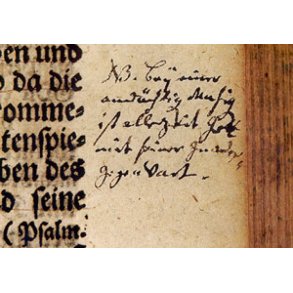 ben und
da die
Comme=
tenspie=
ben des
d seine
(Psalm.
NB. Bey einer
andächtig Musiq
ist allezeit Gott
mit seiner Gnaden=
Gegenwart.